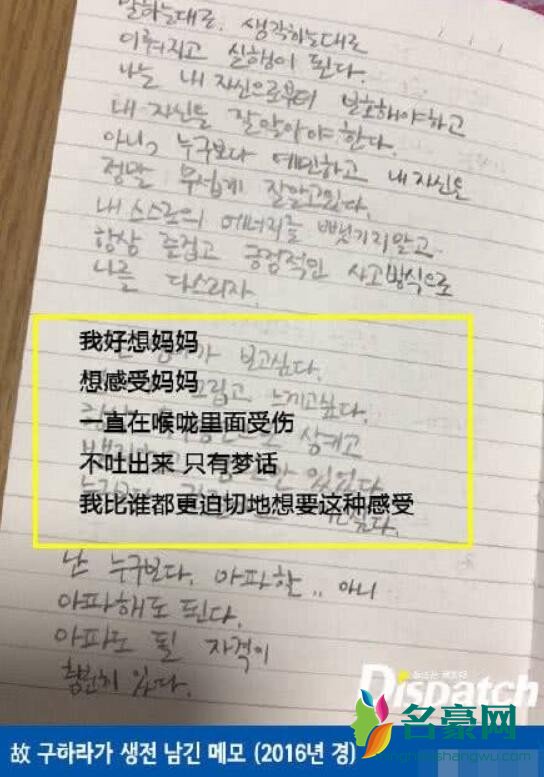 말하는대로, 생각하는대로
이뤄지고 실행이 된다.
나는 내 자신으로부터 보호해야하고
내 자신을 잘알아야 한다.
아니, 누구보다 예민하고 내 자신은
정말 무섭게 잘알고있다.
내 스스로의 에너지를 뺏기지말고
항상 즐겁고 긍정적인 사고방식으로
나를 다스리자.
我好想妈妈
보고싶다.
想感受妈妈
그립고 느끼고싶다.
一直在喉咙里面受伤
삼키고
不吐出来 只有梦话
있었다
我比谁都更迫切地想要这种感受
난 누구보다. 아파한.. 아니
아파해도 된다.
아파도 될 자격이
충분히 있다.
Dispatch
名豪网
故 구하라가 생전 남긴 메모 (2016년 경)